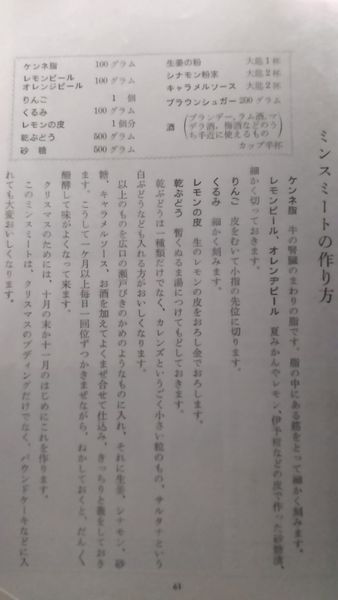 ミンスミートの作り方
ケンネ脂 100グラム
レモンピール
オレンジピール 100グラム
りんご 1個
くるみ 100グラム
レモンの皮 1個分
乾ぶどう 500グラム
砂糖 500グラム
生姜の粉 大匙1杯
シナモン粉末 大匙2杯
キャラメルソース 大匙2杯
ブラウンシュガー 200グラム
酒(ブランデー、ラム酒、マデラ酒、梅酒などのうち手近に使えるもの) カップ半杯
ケンネ脂 牛の腎臓のまわりの脂です。脂の中にある筋をとって細かく刻みます。
レモンピール、オレンヂピール 夏みかんやレモン、伊予柑などの皮で作った砂糖漬、
細かく切っておきます。
りんご 皮をむいて小指の先位に切ります。
くるみ 細かく刻みます。
レモンの皮 生のレモンの皮をおろし金でおろします。
乾ぶどう 暫くぬるま湯につけてもどしておきます。
乾ぶどうは一種類だけでなく、カレンズというごく小さい粒のもの、サルタナという
白ぶどうなども入れる方がおいしくなります。
以上のものを広口の瀬戸びきのかめのようなものに入れ、それに生姜、シナモン、砂
糖、キャラメルソース、お酒を加えてよくまぜ合せて仕込み、きっちりと蓋をしておき
ます。こうして一ケ月以上毎日一回位ずつかきまぜながら、ねかしておくと、だんく
醗酵して味がよくなって来ます。
クリスマスのためには、十月の末か十一月のはじめにこれを作ります。
このミンスミートは、クリスマスのプディングだけでなく、パウンドケーキなどに入
れても大変おいしくなります。
61